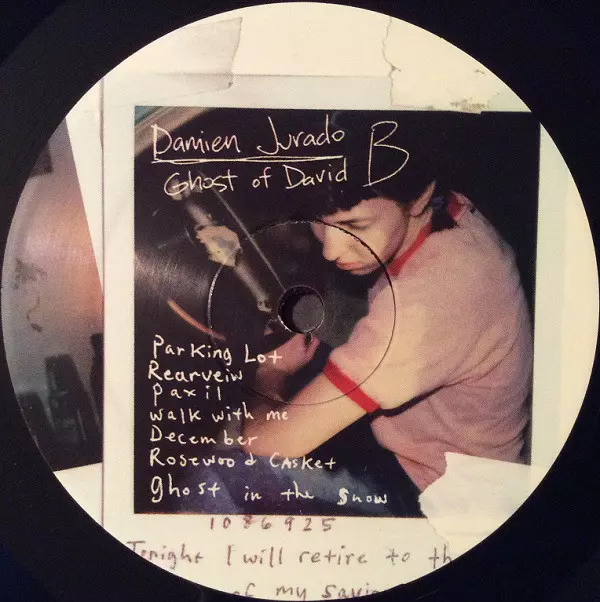 Damien Jurado
Ghost of David
B
Parking Lot
Rearveiw
Paxil
walk with me
December
Rosewood Casket
ghost in the snow
1086925
Tonight I will retire to th
of my savio